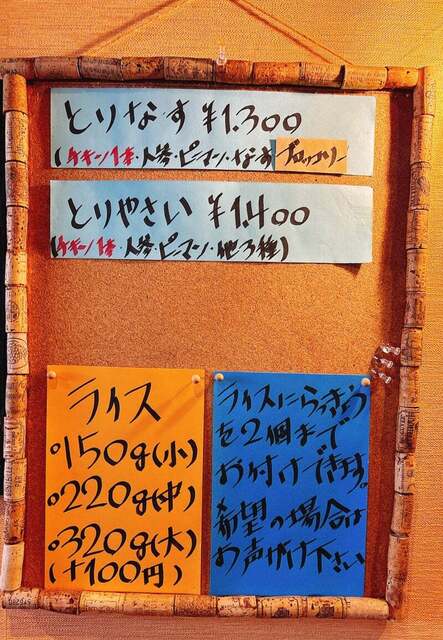 とりなす ¥1.300
(チキン1本・人参・ピーマン・なす ブロッコリー
とりやさい ¥1.400
(チキン1本・人参・ピーマン・他3種)
ライス
○150g(小)
○220g(中)
○320g(大)
(+100円)
ライスにらっきょう
を2個まで
お付けできます。
希望の場合は
お声がけ下さい